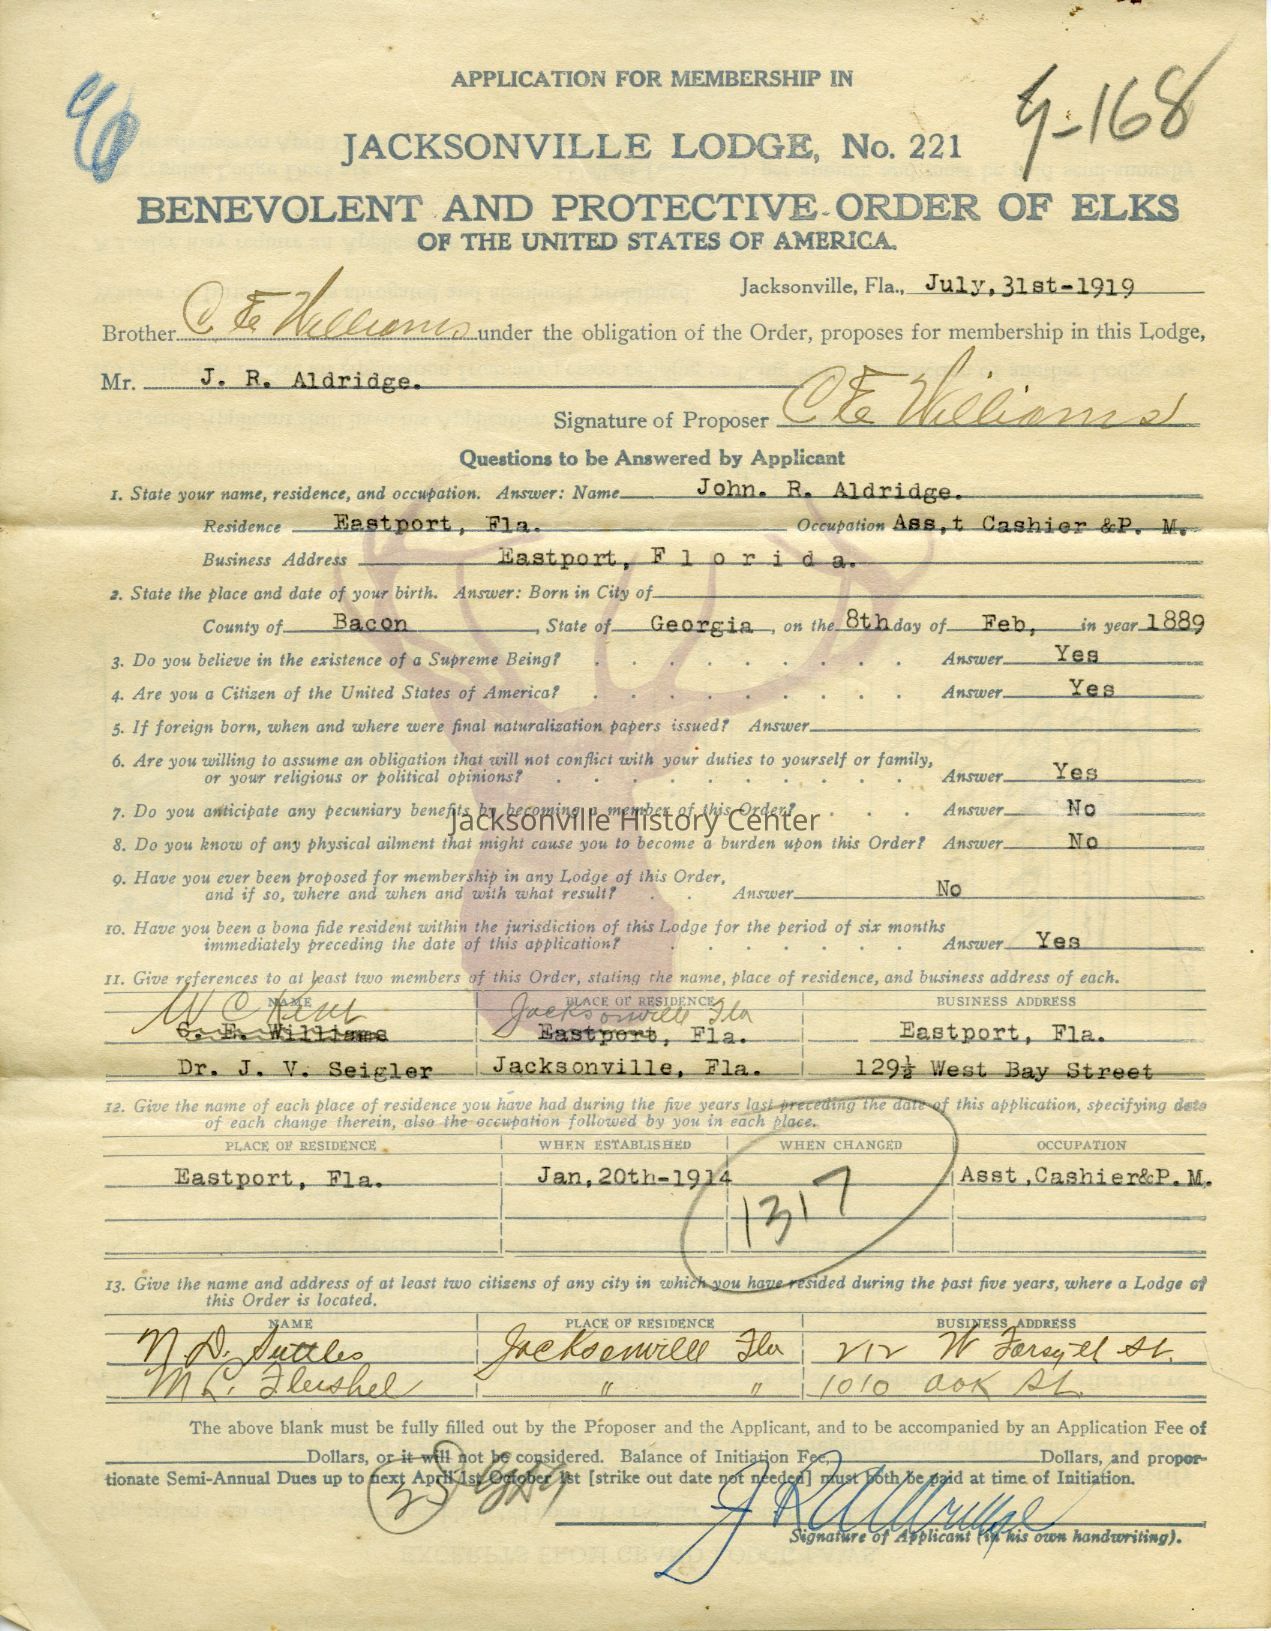 APPLICATION FOR MEMBERSHIP IN
G-168
JACKSONVILLE LODGE, No. 221
BENEVOLENT AND PROTECTIVE ORDER OF ELKS
OF THE UNITED STATES OF AMERICA.
Jacksonville, Fla., July,31st-1919
Brother C E Williams under the obligation of the Order, proposes for membership in this Lodge,
Mr. J. R. Aldridge.
Signature of Proposer C E Williams
Questions to be Answered by Applicant
1. State your name, residence, and occupation. Answer: Name John. R. Aldridge.
Residence Eastport, Fla. Occupation Ass,t Cashier &P. M.
Business Address Eastport, F l o r i d a.
2. State the place and date of your birth. Answer: Born in City of
County of Bacon, State of Georgia, on the 8th day of Feb, in year 1889
3. Do you believe in the existence of a Supreme Being? . . . . . . . . . Answer Yes
4. Are you a Citizen of the United States of America? . . . . . . . . . Answer Yes
5. If foreign born, when and where were final naturalization papers issued? Answer
6. Are you willing to assume an obligation that will not conflict with your duties to yourself or family,
or your religious or political opinions? . . . . . . . . . . Answer Yes
7. Do you anticipate any pecuniary benefits by becoming a member of this Order? . . . Answer No
Jacksonville History Center
8. Do you know of any physical ailment that might cause you to become a burden upon this Order? Answer No
9. Have you ever been proposed for membership in any Lodge of this Order,
and if so, where and when and with what result? . . Answer No
10. Have you been a bona fide resident within the jurisdiction of this Lodge for the period of six months
immediately preceding the date of this application? . . . . . . . Answer Yes
11. Give references to at least two members of this Order, stating the name, place of residence, and business address of each.
NAME PLACE OF RESIDENCE BUSINESS ADDRESS
W C Kent Jacksonville Fla
C. E. Williams Eastport, Fla. Eastport, Fla.
Dr. J. V. Seigler Jacksonville, Fla. 129½ West Bay Street
12. Give the name of each place of residence you have had during the five years last preceding the date of this application, specifying date
of each change therein, also the occupation followed by you in each place.
PLACE OF RESIDENCE WHEN ESTABLISHED WHEN CHANGED OCCUPATION
Eastport, Fla. Jan,20th-1914 Asst,Cashier&P.M.
1317
13. Give the name and address of at least two citizens of any city in which you have resided during the past five years, where a Lodge of
this Order is located.
NAME PLACE OF RESIDENCE BUSINESS ADDRESS
N. D. Suttles Jacksonville Fla 212 W Forsyth St.
M L. Fleishel " " 1010 Oak St.
The above blank must be fully filled out by the Proposer and the Applicant, and to be accompanied by an Application Fee of
Dollars, or it will not be considered. Balance of Initiation Fee, Dollars, and propor-
tionate Semi-Annual Dues up to next April 1st October 1st [strike out date not needed] must both be paid at time of Initiation.
25
J R Aldridge
Signature of Applicant (in his own handwriting).